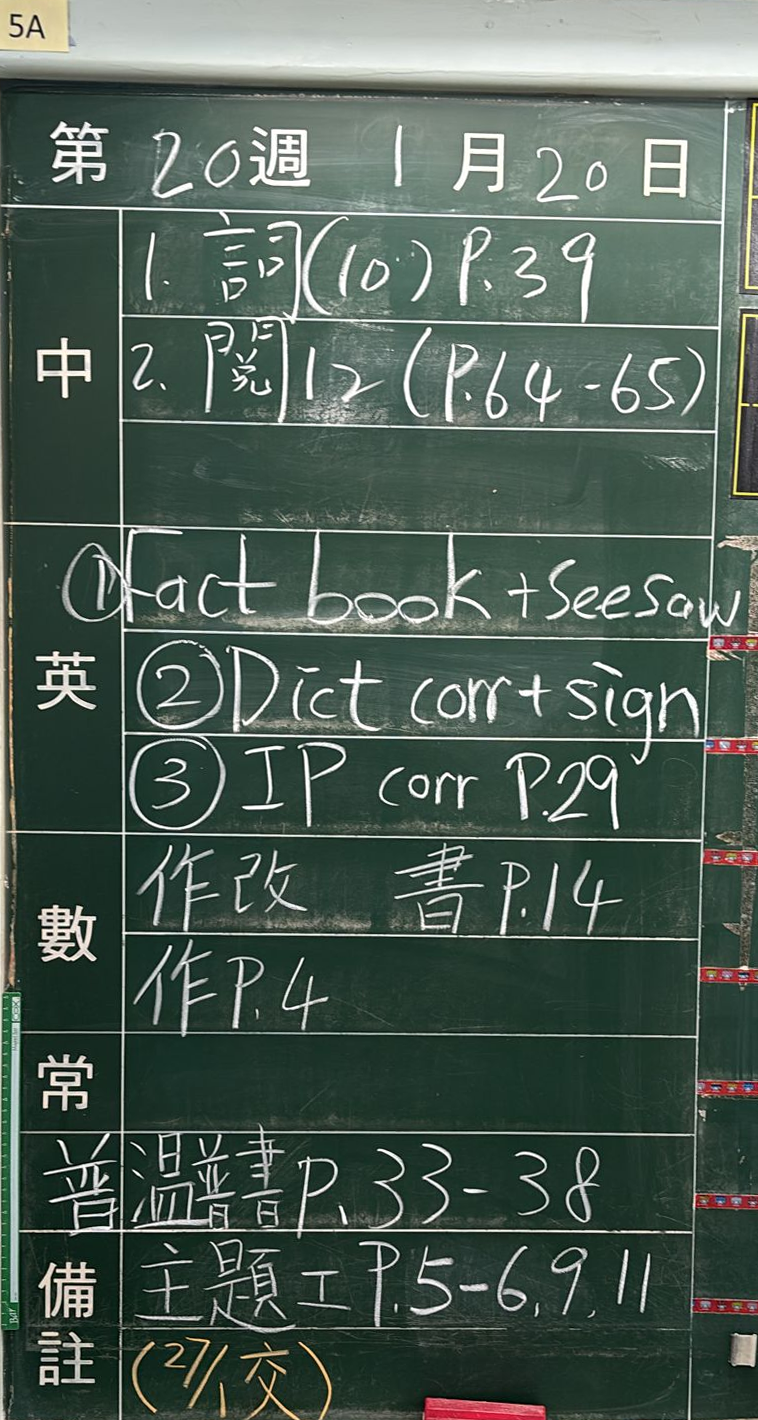 5A
第20週 1月20日
中
1. 詞(10) P.39
2. 閱12 (P.64-65)
英
①Fact book + Seesaw
②Dict corr + sign
③IP corr P.29
數
作改 書P.14
作P.4
常
普 溫普書P.33-38
備註
主題工P.5-6,9,11
(27/1交)